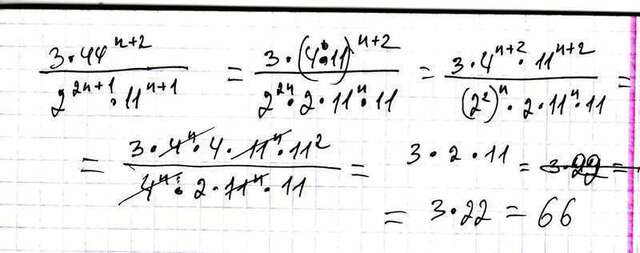 3·44^(n+2) / 2^(2n+1)·11^(n+1) = 3·(4·11)^(n+2) / 2^(2n)·2·11^n·11 = 3·4^(n+2)·11^(n+2) / (2^2)^n·2·11^n·11 =
= 3·4^n·4·11^n·11^2 / 4^n·2·11^n·11 = 3·2·11 = 3·22 =
= 3·22 = 66